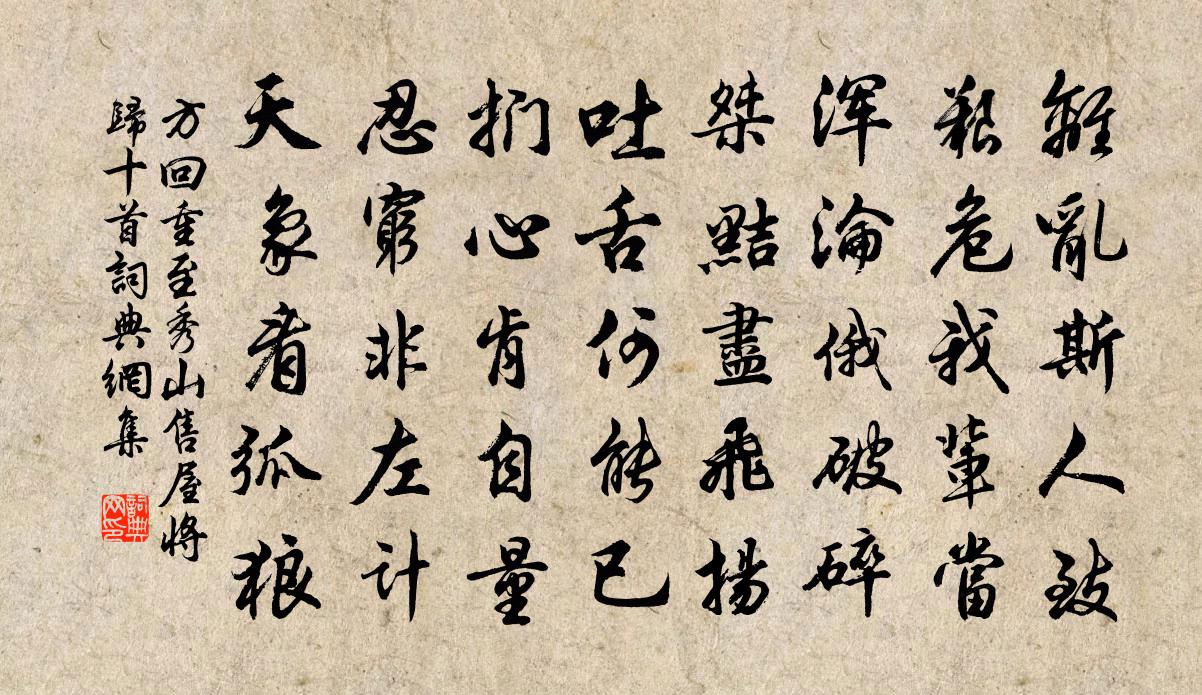 離亂斯人致
艱危我輩當
渾淪俄破碎
桀黠盡飛揚
吐舌何能已
捫心肯自量
忍窮非左計
天象看弧狼
方回重至秀山售屋將
歸十首詞典網集
詞典
网印